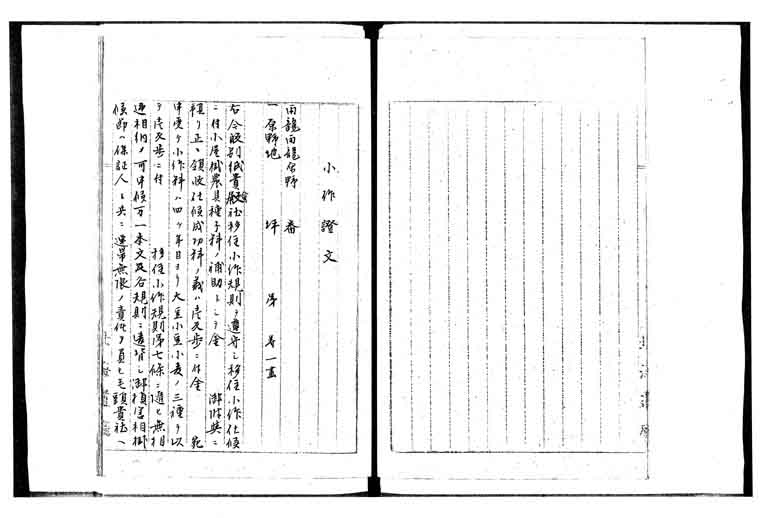 小作證文
雨龍雨龍原野 番
一原野地 坪 第 号一画
右今般別紙貴殿社移住小作規則ヲ遵守シ移住小作仕候
ニ付小屋掛農具種子料ノ補助トシテ金 御貸与ニ
預リ正ニ領收仕候成功料ノ義ハ壱反歩ニ付金 宛
申受ケ小作料ハ四ケ年目ヨリ大豆小豆小麦ノ三種ヲ以
テ壱反歩ニ付 移住小作規則第七條ニ遵ヒ無相
違相納メ可申候万一本文及右規則ニ違背シ御損害相掛
候節ハ保証人ト共ニ連帯無限ノ責任ヲ負ヒ毛頭貴社ヘ